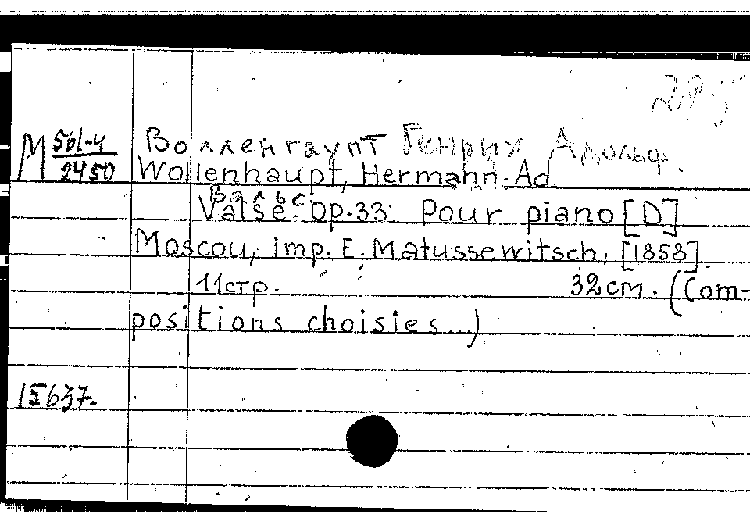 М 561-4
2450
Волленгаупт Генрих Адольф.
Wollenhaupt, Hermann. Ad
Вальс.
Valse. Op.33. Pour piano [D]
Moscou, imp. E. Matussewitsch, [1858].
11стр. 32см. (Com-
positions choisies...)
637.